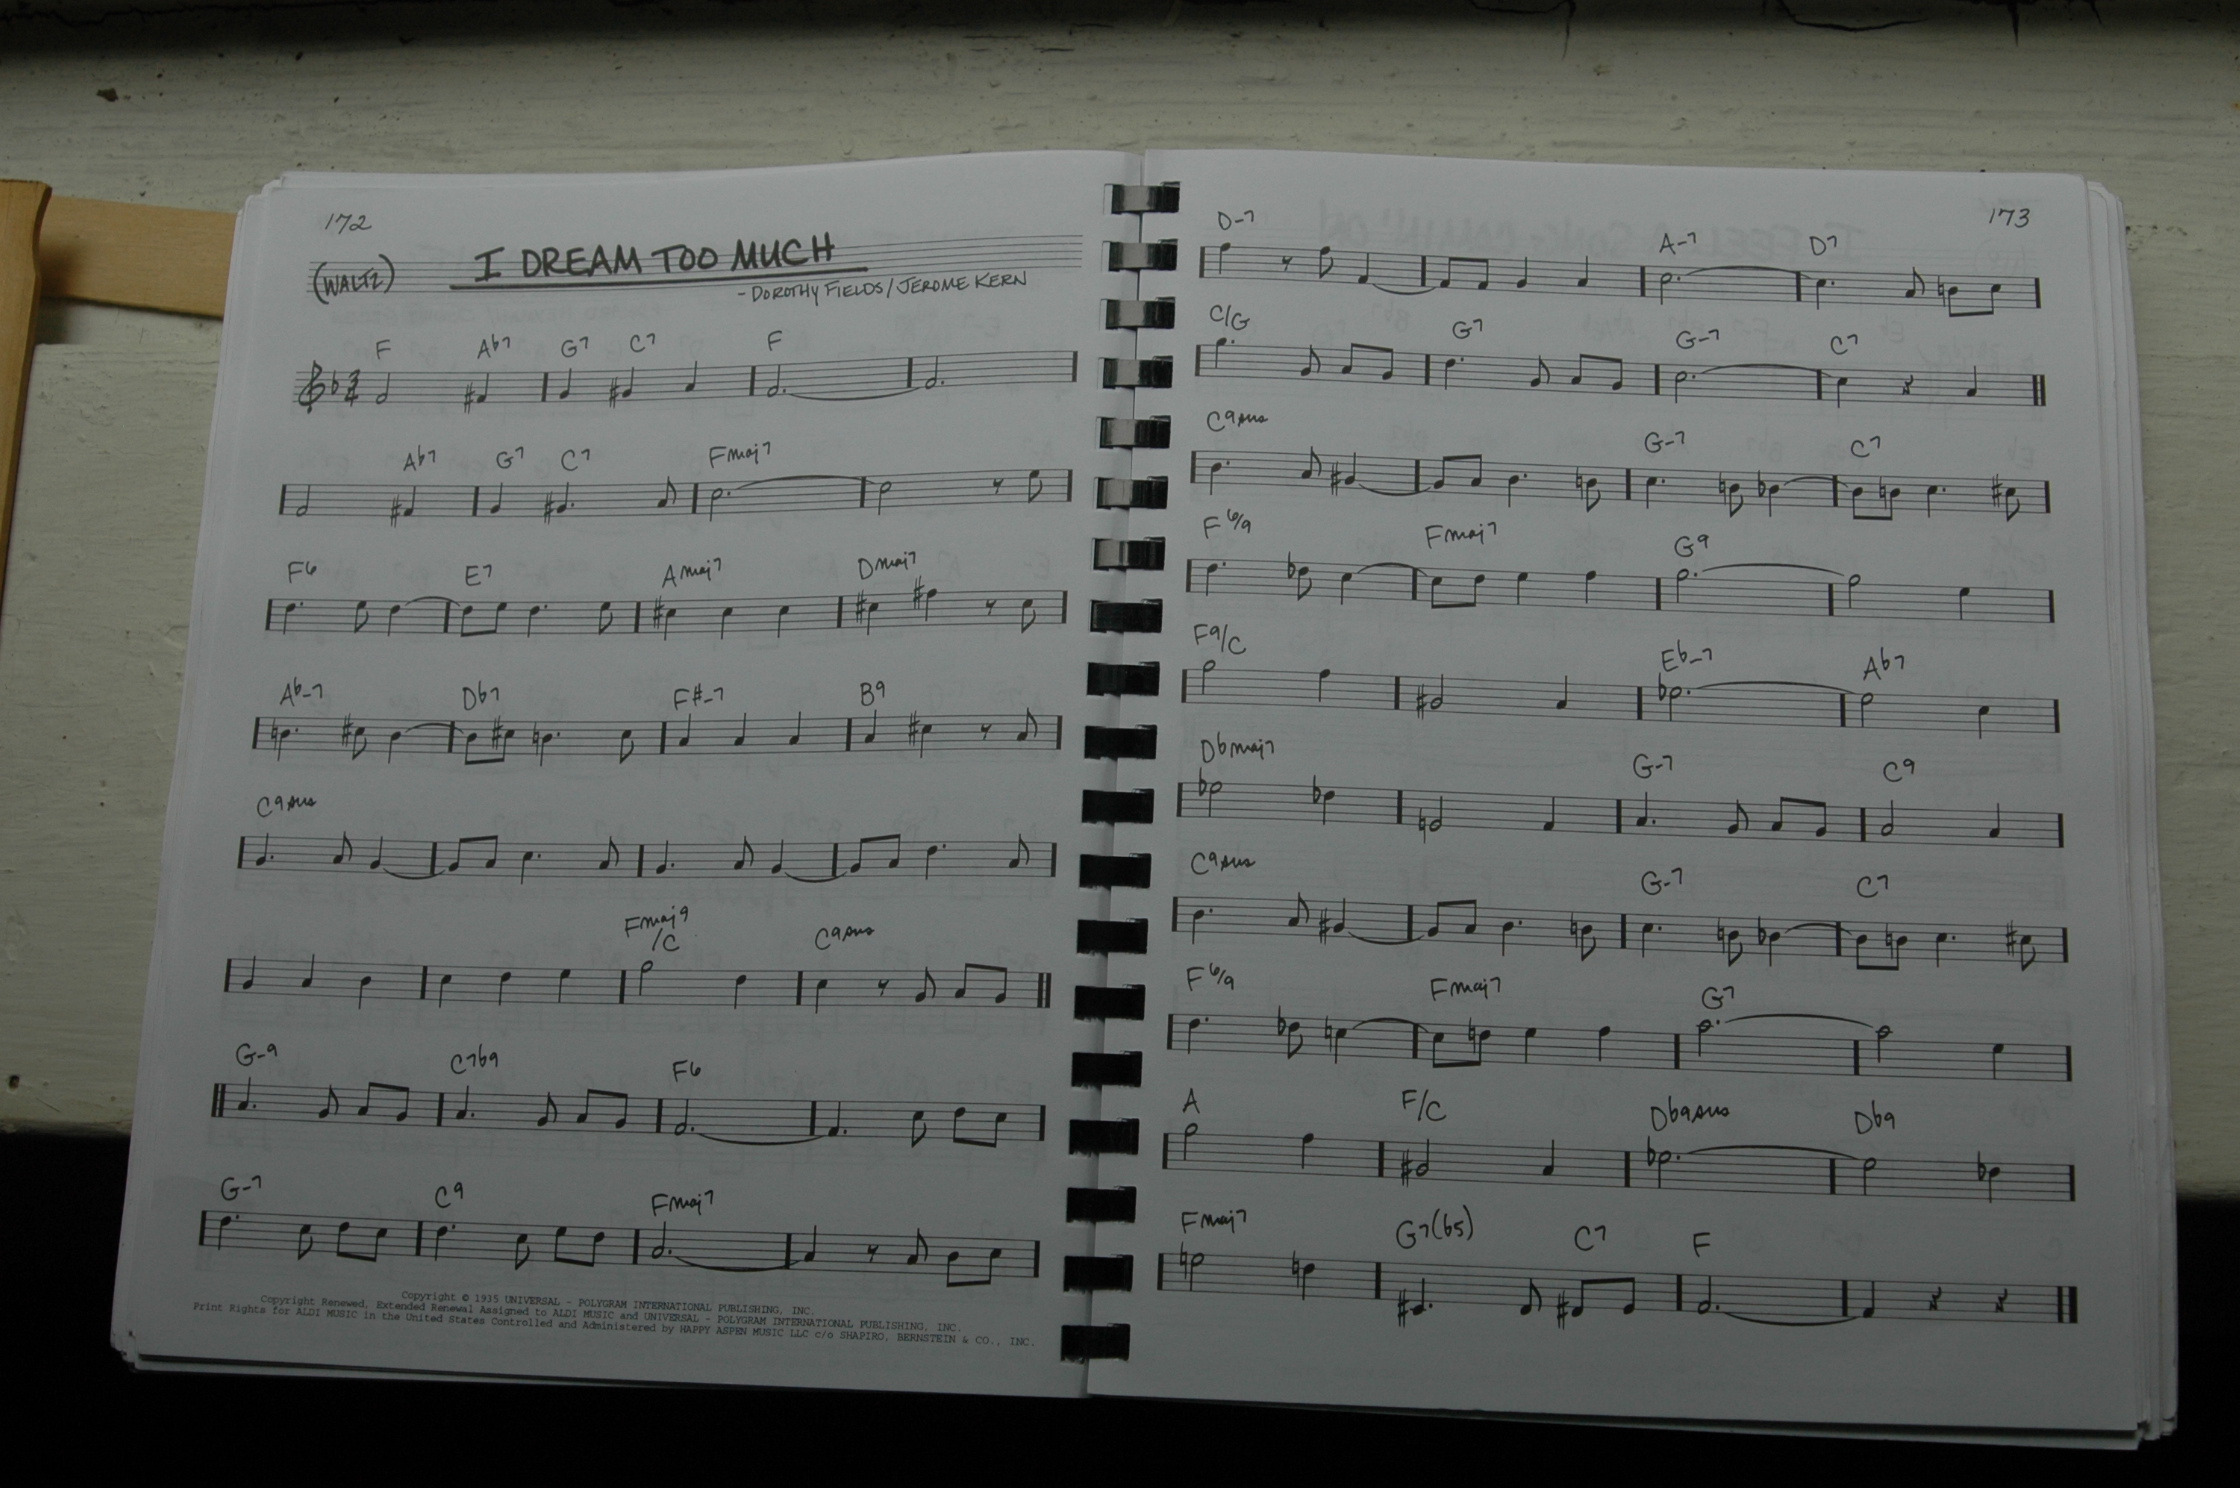 172
(WALTZ)
I DREAM TOO MUCH
- DOROTHY FIELDS / JEROME KERN
F Ab7 G7 C7 F
3
4
Ab7 G7 C7 Fmaj7
F6 E7 Amaj7 Dmaj7
Ab-7 Db7 F#-7 B9
C9sus
Fmaj9/C C9sus
G-9 C7b9 F6
G-7 C9 Fmaj7
Copyright © 1935 UNIVERSAL - POLYGRAM INTERNATIONAL PUBLISHING, INC.
Copyright Renewed, Extended Renewal Assigned to ALDI MUSIC and UNIVERSAL - POLYGRAM INTERNATIONAL PUBLISHING, INC.
Print Rights for ALDI MUSIC in the United States Controlled and Administered by HAPPY ASPEN MUSIC LLC c/o SHAPIRO, BERNSTEIN & CO., INC.
173
D-7 A-7 D7
C/G G7 G-7 C7
C9sus G-7 C7
F6/9 Fmaj7 G9
F9/C Eb-7 Ab7
Dbmaj7 G-7 C9
C9sus G-7 C7
F6/9 Fmaj7 G7
A F/C Db9sus Db9
Fmaj7 G7(b5) C7 F